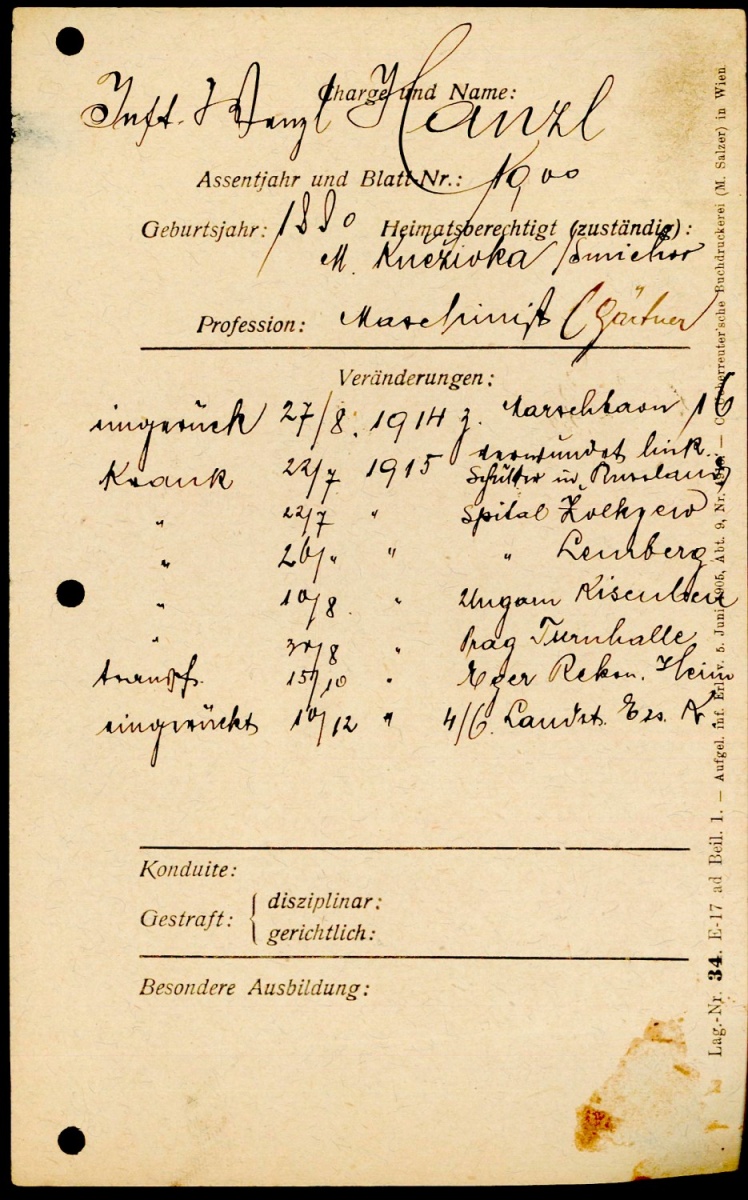 Charge und Name:
Inft. Wenzl Hanzl
Assentjahr und Blatt-Nr.: 1900
Geburtsjahr: 1880 Heimatsberechtigt (zuständig):
M. Kněživka / Smichov
Profession: Maschinist (Gärtner
Veränderungen:
eingerück 27/8. 1914 z. Marschbaon 16
Krank 22/7 1915 verwundet link.
Schulter in Russland
" 22/7 " Spital Zolkyew
" 26/" " " Lemberg
" 10/8. " Ungarn
" 30/8 " Prag Turnhalle
transf. 15/10 " Eger Rekon. Heim
eingerückt 10/12 " 4/6. Landst. Ers. K.
Konduite:
Gestraft: { disziplinar:
gerichtlich:
Besondere Ausbildung:
Lag.-Nr. 34. E-17 ad Beil. 1. — Aufgel. inf. Erl. v. 5. Juni 1905, Abt. 9, Nr. — Buchdruckerei (M. Salzer) in Wien